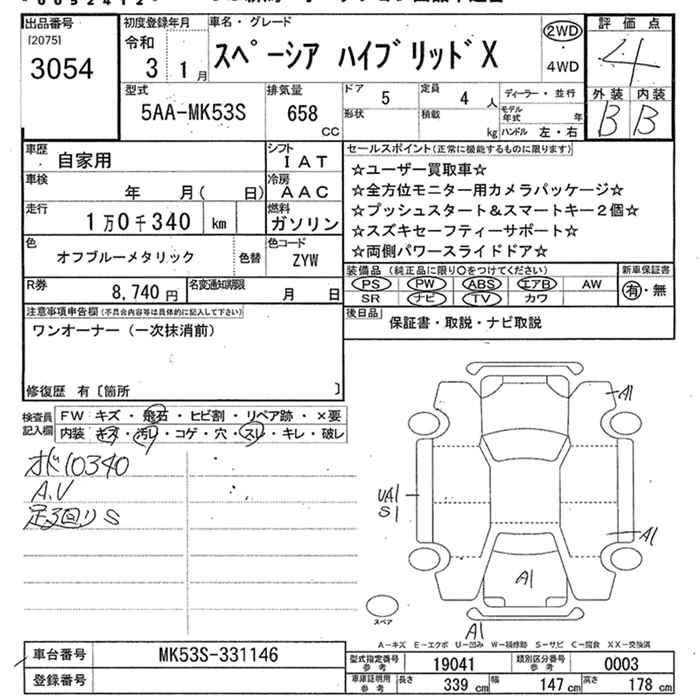 出品番号
[2075]
3054
初度登録年月
令和
3 1月
車名・グレード
スペーシア ハイブリッドX
2WD
・
4WD
評価点
4
外装 内装
B B
型式
5AA-MK53S
排気量
658
CC
ドア 5
形状
定員 4 人
積載 kg
ディーラー・並行
モデル年式 年
ハンドル 左・右
車歴
自家用
シフト
IAT
車検
年 月( 日)
冷房
AAC
走行
1万0千340 km
燃料
ガソリン
色
オフブルーメタリック
色替
色コード
ZYW
R券
8,740円
名変通知期限
月 日
セールスポイント(正常に機能するものに限ります)
☆ユーザー買取車☆
☆全方位モニター用カメラパッケージ☆
☆プッシュスタート&スマートキー2個☆
☆スズキセーフティーサポート☆
☆両側パワースライドドア☆
装備品(純正品に限り○をつけてください)
PS PW ABS エアB AW
SR ナビ TV カワ
新車保証書
有・無
後日品
保証書・取説・ナビ取説
注意事項申告欄(不具合内容等は具体的に記入して下さい)
ワンオーナー(一次抹消前)
修復歴 有〔箇所 〕
検査員記入欄
FW キズ・飛石・ヒビ割・リペア跡・×要
内装 キズ・汚レ・コゲ・穴・スレ・キレ・破レ
オド10340
A.V
足廻りS
A1
UA1
S1
A1
A1
A1
スペア
A-キズ E-エクボ U-凹み W-補修跡 S-サビ C-腐食 XX-交換済
車台番号
MK53S-331146
登録番号
型式指定番号 参考
19041
類別区分番号 参考
0003
車庫証明用 参考
長さ 339cm
幅 147cm
高さ 178cm